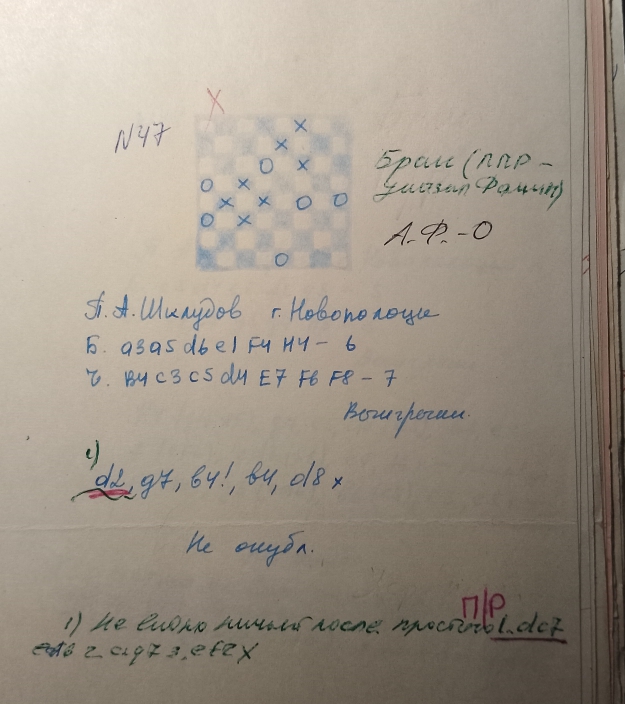 N47
Брак (ППР –
А.Ф.-О
П.А. Шклудов г. Новополоцк
Б. а3 а5 d6 e1 F4 H4 – 6
Ч. В4 с3 с5 d4 E7 F6 F8 – 7
Выигрыш.
1)
d2, g7, в4!, в4, d8 x
Не опубл.
П/Р
1) Не видно ничьей после простого 1. dc7
2. cg7 3. ef2 X